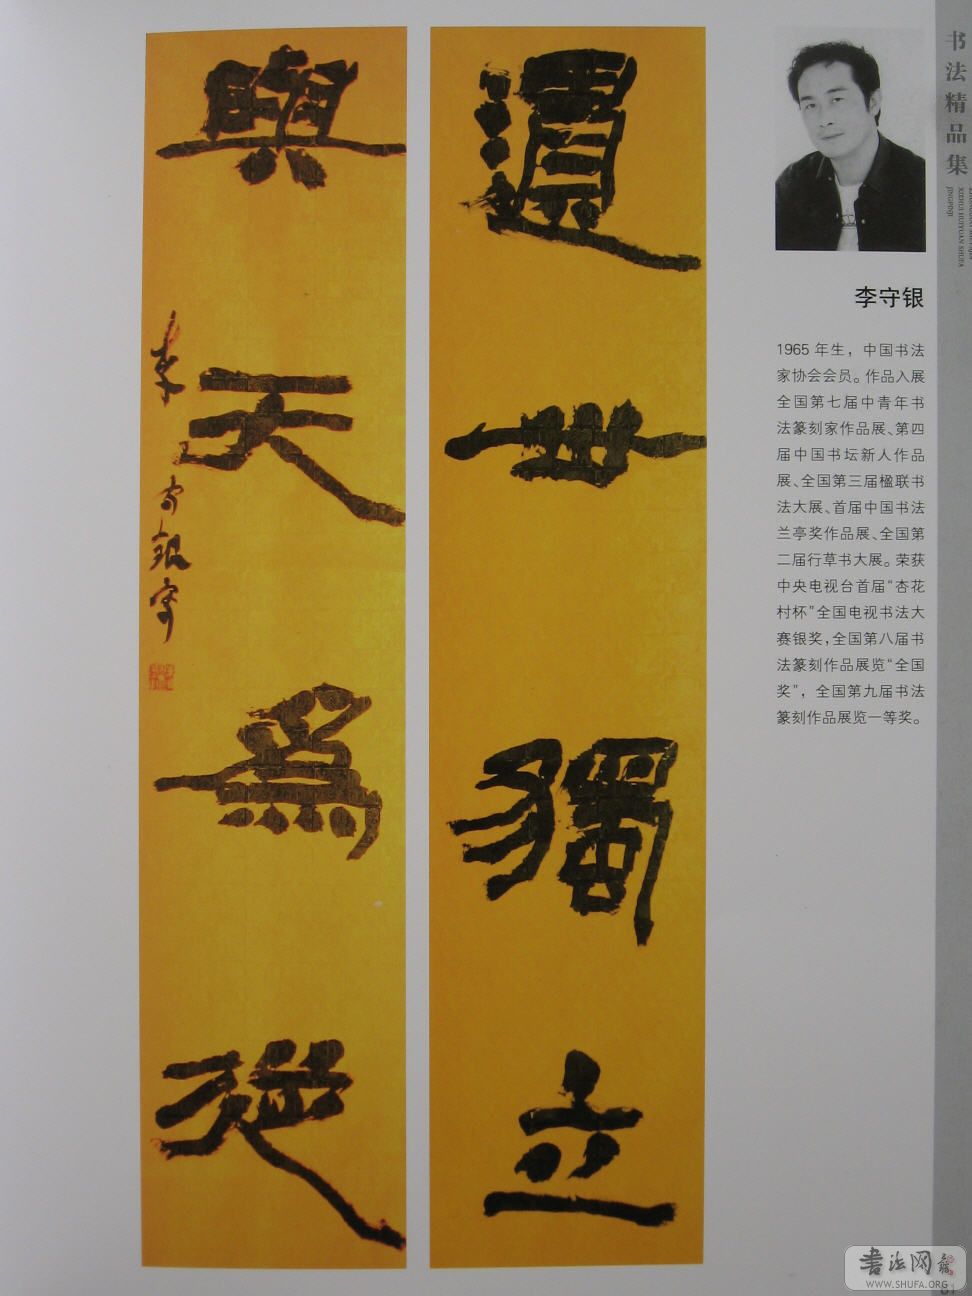 遺世獨立
與天爲從
李守銀
书法精品集
XIEHUI HUIYUAN SHUFA
JINGPINJI
李守银
1965 年生，中国书法
家协会会员。作品入展
全国第七届中青年书
法篆刻家作品展、第四
届中国书坛新人作品
展、全国第三届楹联书
法大展、首届中国书法
兰亭奖作品展、全国第
二届行草书大展。荣获
中央电视台首届“杏花
村杯”全国电视书法大
赛银奖，全国第八届书
法篆刻作品展览“全国
奖”，全国第九届书法
篆刻作品展览一等奖。
书法网
WWW.SHUFA.ORG